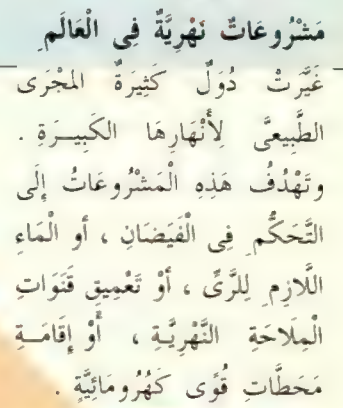 مَشْرُوعَاتٌ نَهْرِيَّةٌ فِى الْعَالَمِ
غَيَّرَتْ دُوَلٌ كَثِيرَةٌ المْجَرَى
الطَّبِيعىَّ لِأَنْهَارِهَا الكَبِيـرَةِ .
وتَهْدُفُ هَذِهِ الْمَشْرُوعَاتُ إلَى
التَّحَكُّمِ فِى الْفَيَضَانِ ، أو الْمَاءِ
اللَّازِمِ لِلرَّىِّ ، أوْ تَعْمِيقِ قَنَوَاتِ
الْمِلَاحَةِ النَّهْرِيَّـةِ ، أَوْ إقَامَـةِ
مَحَطَّاتِ قُوًى كَهْرُومَائِيَّةٍ .